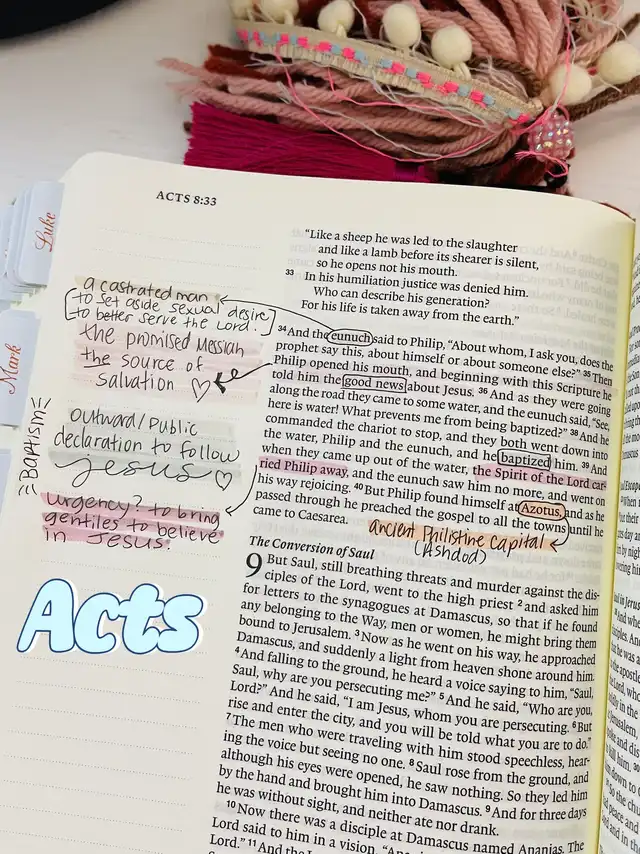 ACTS 8:33
Luke
Mark
"Like a sheep he was led to the slaughter
and like a lamb before its shearer is silent,
so he opens not his mouth.
33 In his humiliation justice was denied him.
Who can describe his generation?
For his life is taken away from the earth."
34 And the eunuch said to Philip, "About whom, I ask you, does the
prophet say this, about himself or about someone else?" 35 Then
Philip opened his mouth, and beginning with this Scripture he
told him the good news about Jesus. 36 And as they were going
along the road they came to some water, and the eunuch said, "See,
here is water! What prevents me from being baptized?" 38 And he
commanded the chariot to stop, and they both went down into
the water, Philip and the eunuch, and he baptized him. 39 And
when they came up out of the water, the Spirit of the Lord car-
ried Philip away, and the eunuch saw him no more, and went on
his way rejoicing. 40 But Philip found himself at Azotus, and as he
passed through he preached the gospel to all the towns until he
came to Caesarea.
ancient Philistine capital
(Ashdod)
a castrated man
to set aside sexual desire
to better serve the Lord.
the promised Messiah
the source of
salvation
Baptism
outward/public
declaration to follow
jesus
urgency? to bring
gentiles to believe
in Jesus!
Acts
The Conversion of Saul
9 But Saul, still breathing threats and murder against the dis-
ciples of the Lord, went to the high priest 2 and asked him
for letters to the synagogues at Damascus, so that if he found
any belonging to the Way, men or women, he might bring them
bound to Jerusalem. 3 Now as he went on his way, he approached
Damascus, and suddenly a light from heaven shone around him.
4 And falling to the ground, he heard a voice saying to him, "Saul,
Saul, why are you persecuting me?" 5 And he said, "Who are you,
Lord?" And he said, "I am Jesus, whom you are persecuting. 6 But
rise and enter the city, and you will be told what you are to do."
7 The men who were traveling with him stood speechless, hear-
ing the voice but seeing no one. 8 Saul rose from the ground, and
although his eyes were opened, he saw nothing. So they led him
by the hand and brought him into Damascus. 9 And for three days
he was without sight, and neither ate nor drank.
10 Now there was a disciple at Damascus named Ananias. The
Lord said to him in a vision, "Ananias."
Lord." 11 And the